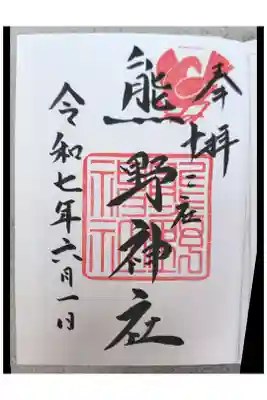 奉拝
十二社
熊野神社
令和七年六月一日